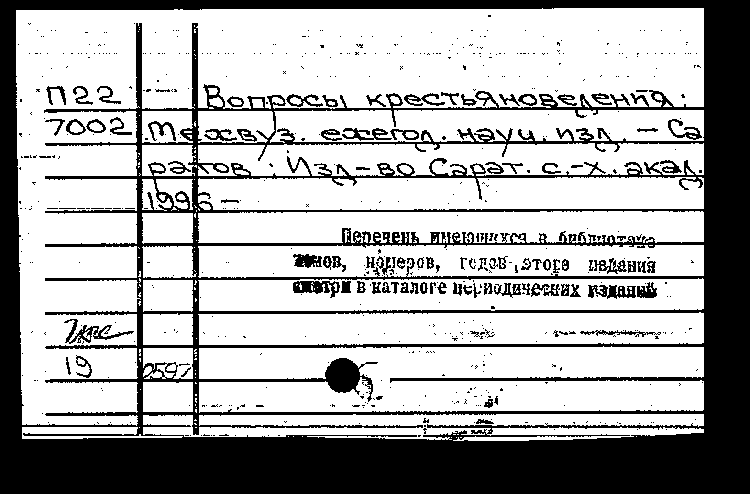 П22 Вопросы крестьяноведения:
7002 Межвуз. ежегод. науч. изд. – Са
ратов: Изд-во Сарат. с.-х. акад.
1996 –
Перечень имеющихся в библиотеке
томов, номеров, годов этого издания
смотри в каталоге периодических изданий
19 0597